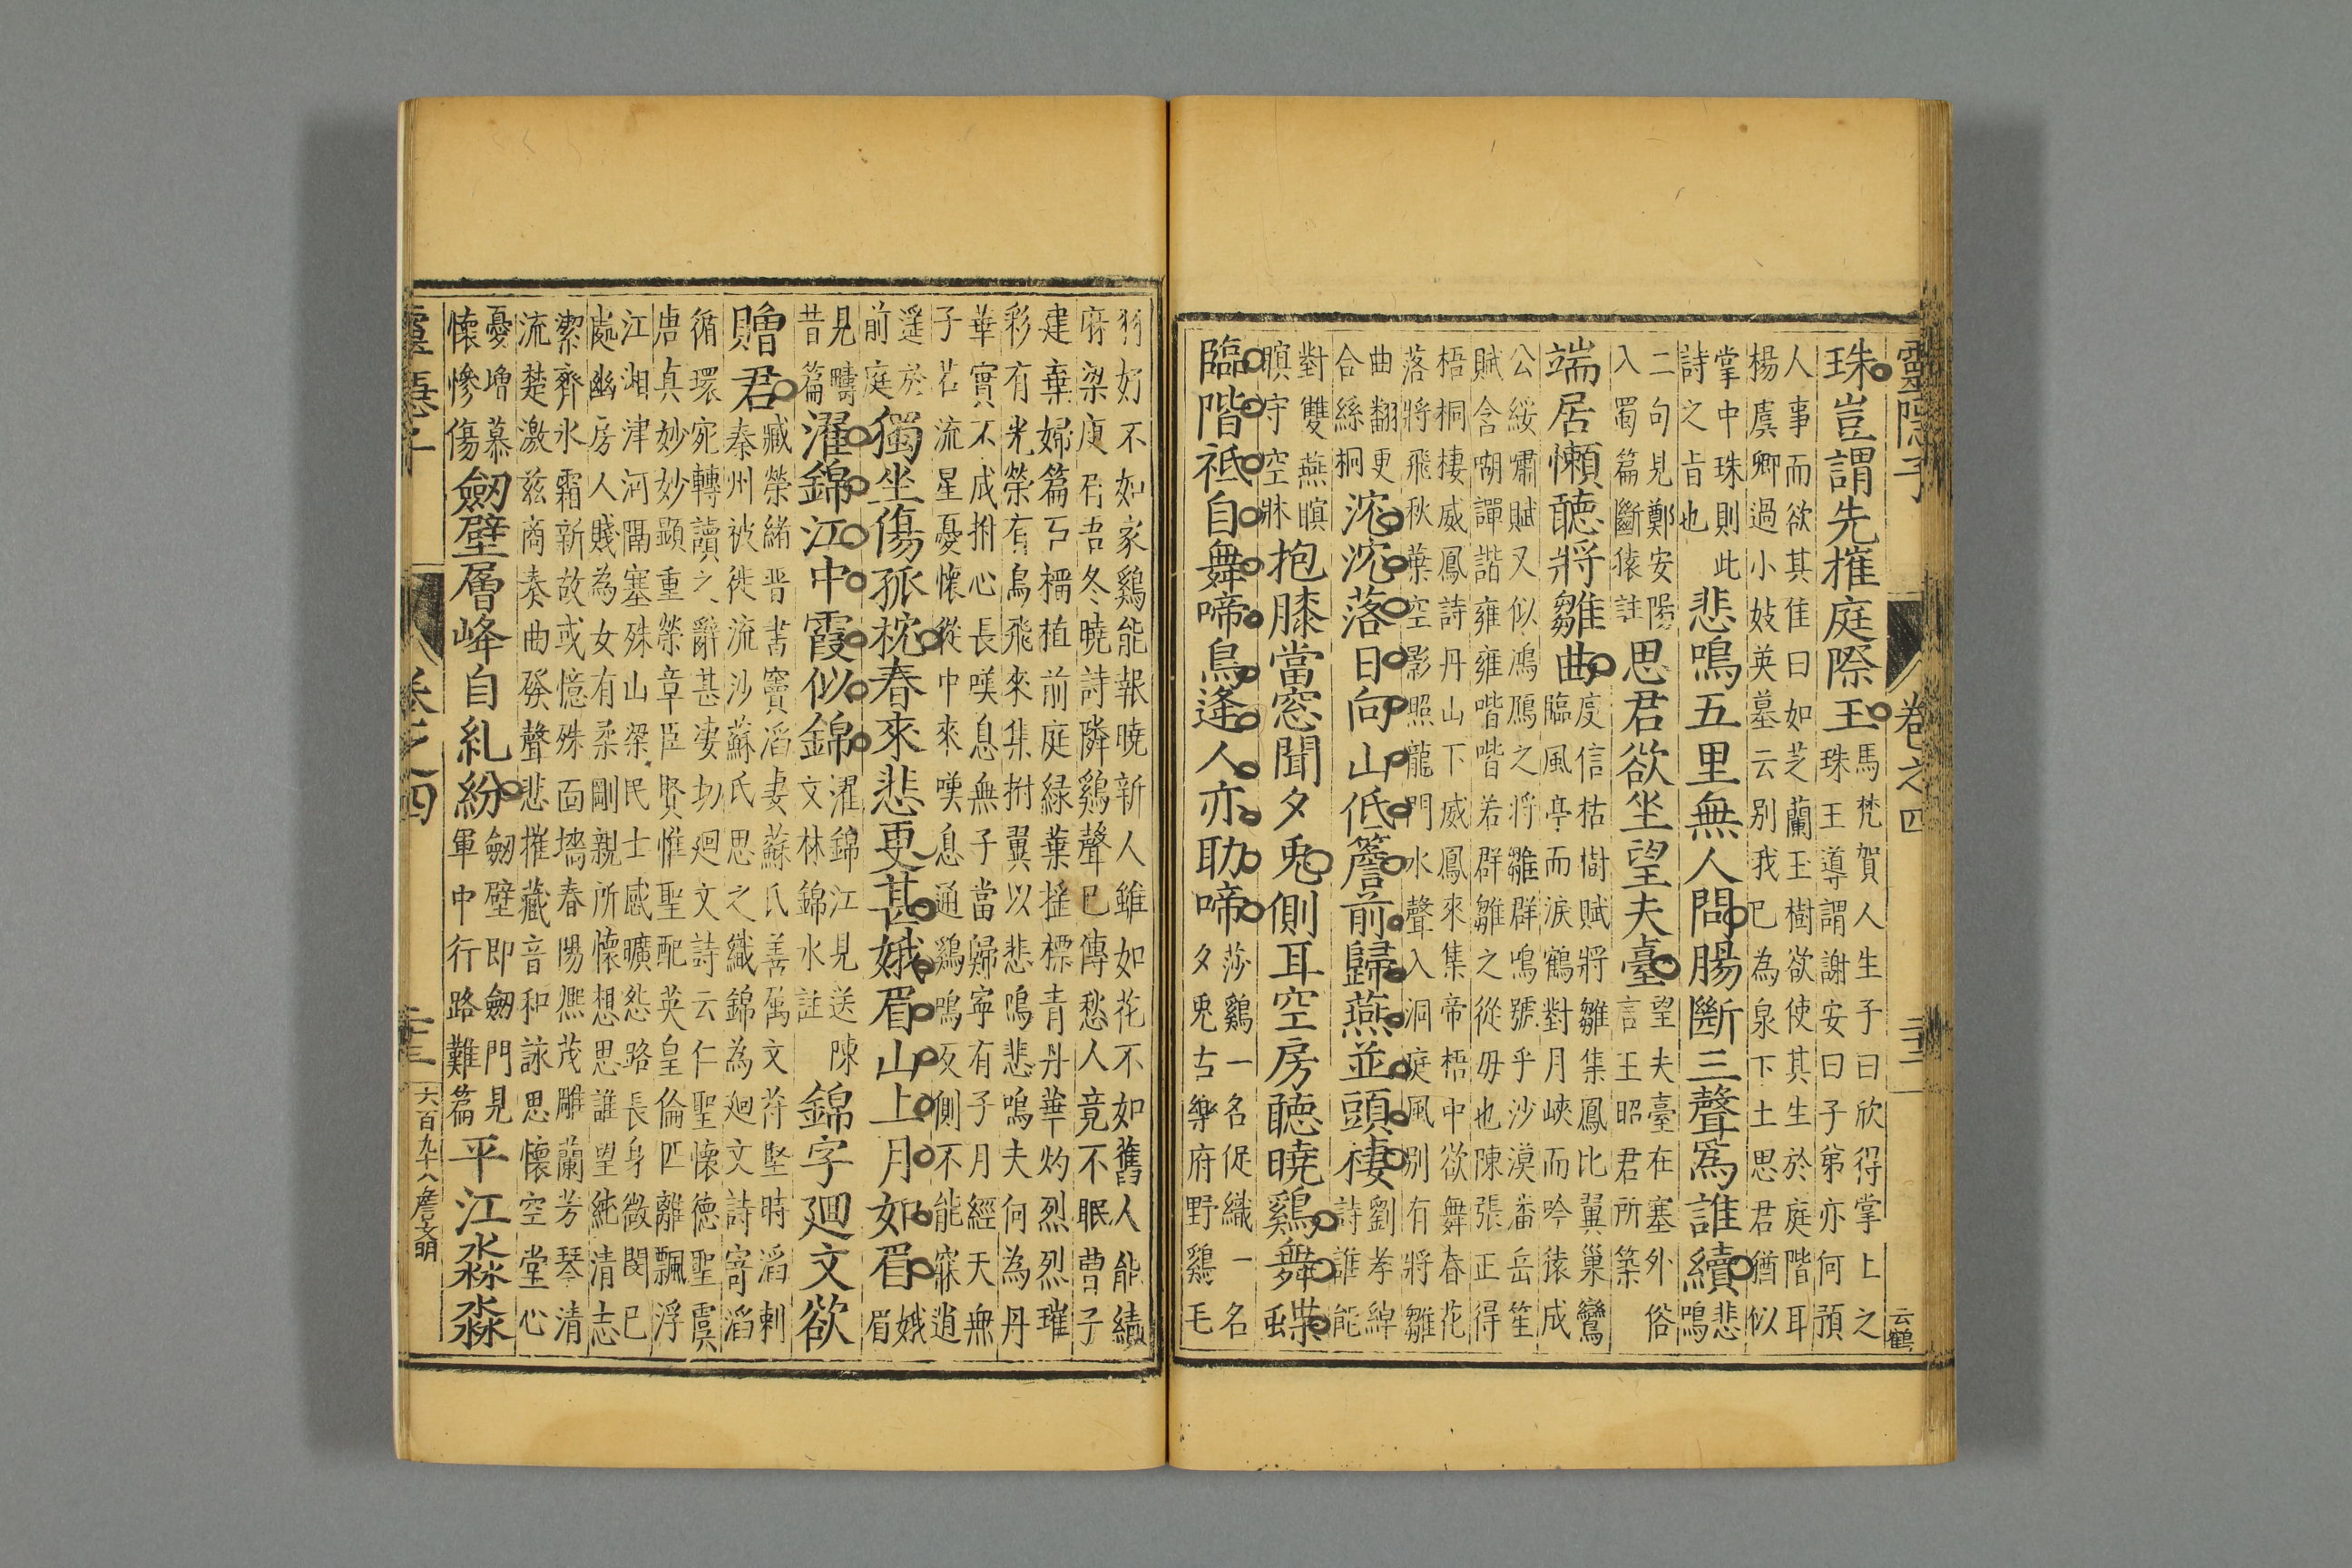 靈隱子 卷之四 二十二 云鶴
珠豈謂先摧庭際玉
馬梵賀人生子曰欣得掌上之
珠王導謂謝安曰子弟亦何預
人事而欲其佳曰如芝蘭玉樹欲使其生於庭階耳
楊虞卿過小妓英墓云别我已為泉下土思君猶似
掌中珠則此
詩之旨也
悲鳴五里無人問腸斷三聲爲誰續
悲
鳴
二句見鄭安陽
入蜀篇斷猿註
思君欲坐望夫臺
望夫臺在塞外俗
言王昭君所築
端居懶聽將雛曲
度信枯樹賦將雛集鳳比翼巢鸞
臨風亭而淚鶴對月峽而吟猿成
公綏嘯賦又似鴻鴈之將雛群鳴號乎沙漠潘岳笙
賦含嘲諢諧雍雍喈喈若群雛之從毋也陳張正得
梧桐棲威鳳詩丹山下威鳳來集帝梧中欲舞春花
落將飛秋葉空影照龍門水聲入洞庭風别有將雛
曲翻更
合絲桐
沈沈落日向山低簷前歸燕並頭棲
劉孝綽
詩誰能
對雙燕瞑
瞑守空牀
抱膝當窓聞夕兎側耳空房聽曉鷄舞蝶
臨階祗自舞啼鳥逢人亦助啼
莎鷄一名促織一名
夕兎古樂府野鷄毛
羽好不如家鷄能報曉新人雖如花不如舊人能績
府梁庾肩吾冬曉詩隣鷄聲已傳愁人竟不眠曹子
建棄婦篇石榴植前庭綠葉搖標青丹華灼烈烈璀
彩有光榮有鳥飛來集拊翼以悲鳴悲鳴夫何為丹
華實不成拊心長嘆息無子當歸寧有子月經天無
子若流星憂懷從中來嘆息通鷄鳴反側不能寐逍
遥於
前庭
獨坐傷孤枕春來悲更甚娥眉山上月如眉
娥
眉
見疇
昔篇
濯錦江中霞似錦
濯錦江見送陳
文林錦水註
錦字廻文欲
贈君
臧榮緒晋書竇滔妻蘇氏善属文苻堅時滔剌
秦州被徙流沙蘇氏思之織錦為廻文詩寄滔
循環宛轉讀之辭甚凄切廻文詩云仁聖懷徳聖虞
唐真妙妙顯重榮章臣賢惟聖配英皇倫匹離飄浮
江湘津河隔塞殊山梁民士感曠怨路長身微閔已
處幽房人賤為女有柔剛親所懷想思誰望純清志
潔齊氷霜新故或憶殊面墻春陽熈茂雕蘭芳琴清
流楚激兹商奏曲發聲悲摧藏音和詠思懷空堂心
憂増慕
懷慘傷
劒壁層峰自糺紛
劒壁即劒門見
軍中行路難篇
平江淼淼
卷之四 二十三 六百九十八詹文明